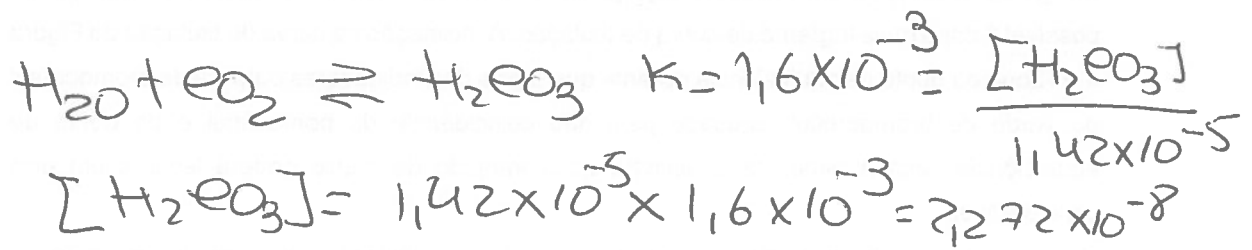 H₂O + CO₂ ⇌ H₂CO₃ K = 1,6×10⁻³ = [H₂CO₃] / 1,42×10⁻⁵
[H₂CO₃] = 1,42×10⁻⁵ × 1,6×10⁻³ = 2,272×10⁻⁸